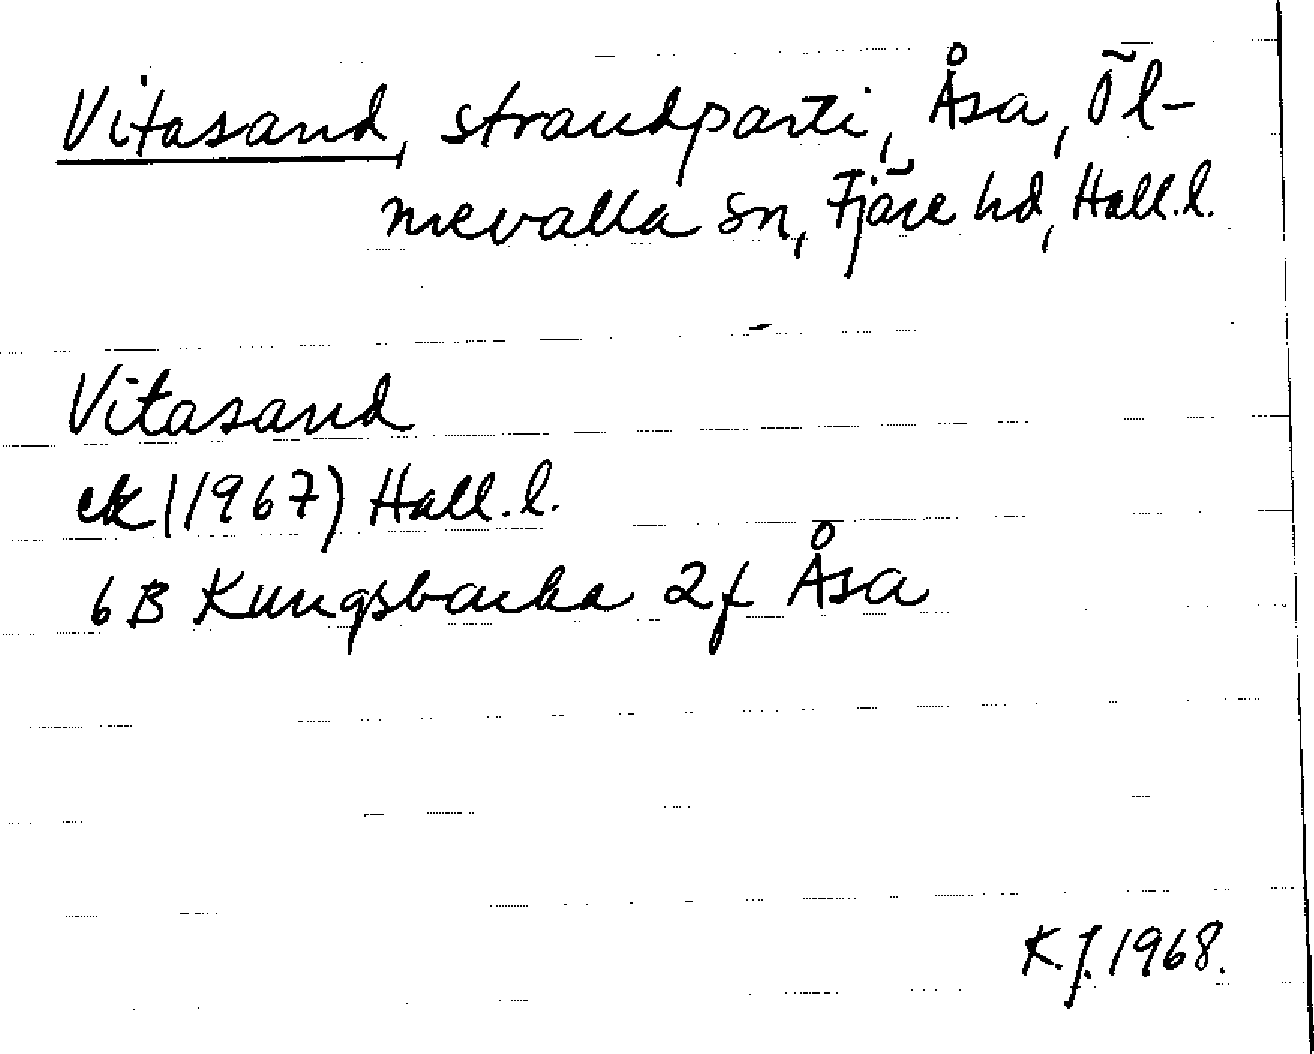 Vitasand, strandparti, Åsa, Öl-
mevalla sn, Fjäre hd, Hall.l.
Vitasand
ek (1967) Hall.l.
6B Kungsbacka 2f Åsa
K.J. 1968.